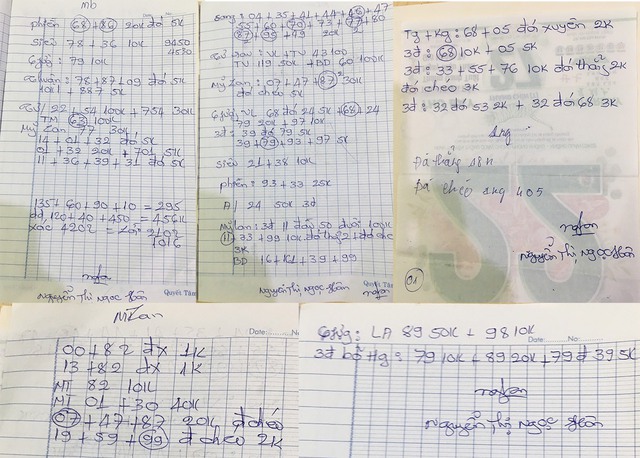 mb
phến 68+86 20k đá 5k
siêu 78 + 36 10k 9450
4530
79 10k
78+87+09 đá 5k
101 + 887 5k
22+54 100k + 754 30k
TM 62 100k
Mỹ Lan 77 30k
14 + 01 + 32 đá 5k
01 + 32 20k + 701 5k
11 + 36 + 39 + 31 đá 5k
135+60+90+10 = 295
đd, 120+40+450 = 456k
xác 4202 = Lời 2102
1016
ngfan
Nguyễn Thị Ngọc Hân
Quyết Tâm
04 + 35 + 41 + 44 + 46 + 47
55 + 60 + 70 + 73 + 77 + 80
87 + 95 + 49 20k
VL + TV 43 100
TV 119 50k + BD 60 100k
Mỹ Lan: 07 + 47 + 87 30k
đá chéo 5k
VL 68 đá 24 5k + 68 + 24
79 20k + 97 10k
3đ: 39 đá 79 5k
39 + 79 + 93 + 97 5k
siêu 21 + 38 10k
phến: 93 + 33 25k
A/ 24 50k 3đ
Mỹ Lan: 3đ 11 đầu 50 đuôi 100k
11 33 + 99 10k đá thg 2 + đá chéo
3k
BD 16 + 161 + 39 + 99
Nguyễn Thị Ngọc Hân
ngfan
Quyết Tâm
Tg + Kg: 68 + 05 đá xuyên 2k
3đ: 68 10k + 05 5k
3đ: 33 + 55 + 76 10k đá thẳng 2k
đá chéo 3k
3đ: 32 đá 53 2k + 32 đá 68 3k
Đá thẳng 18n
Đá chéo 405
ngfan
Nguyễn Thị Ngọc Hân
01
33
M Lan
Date:
00 + 82 đx 1k
13 + 82 đx 1k
MT 82 10k
MT 01 + 30 40k
07 + 47 + 87 20k đ chéo
19 + 59 + 99 đ chéo 2k
LA 89 50k + 98 10k
Date: No:
79 10k + 89 20k + 79 đ 39 5k
ngfan
Nguyễn Thị Ngọc Hân